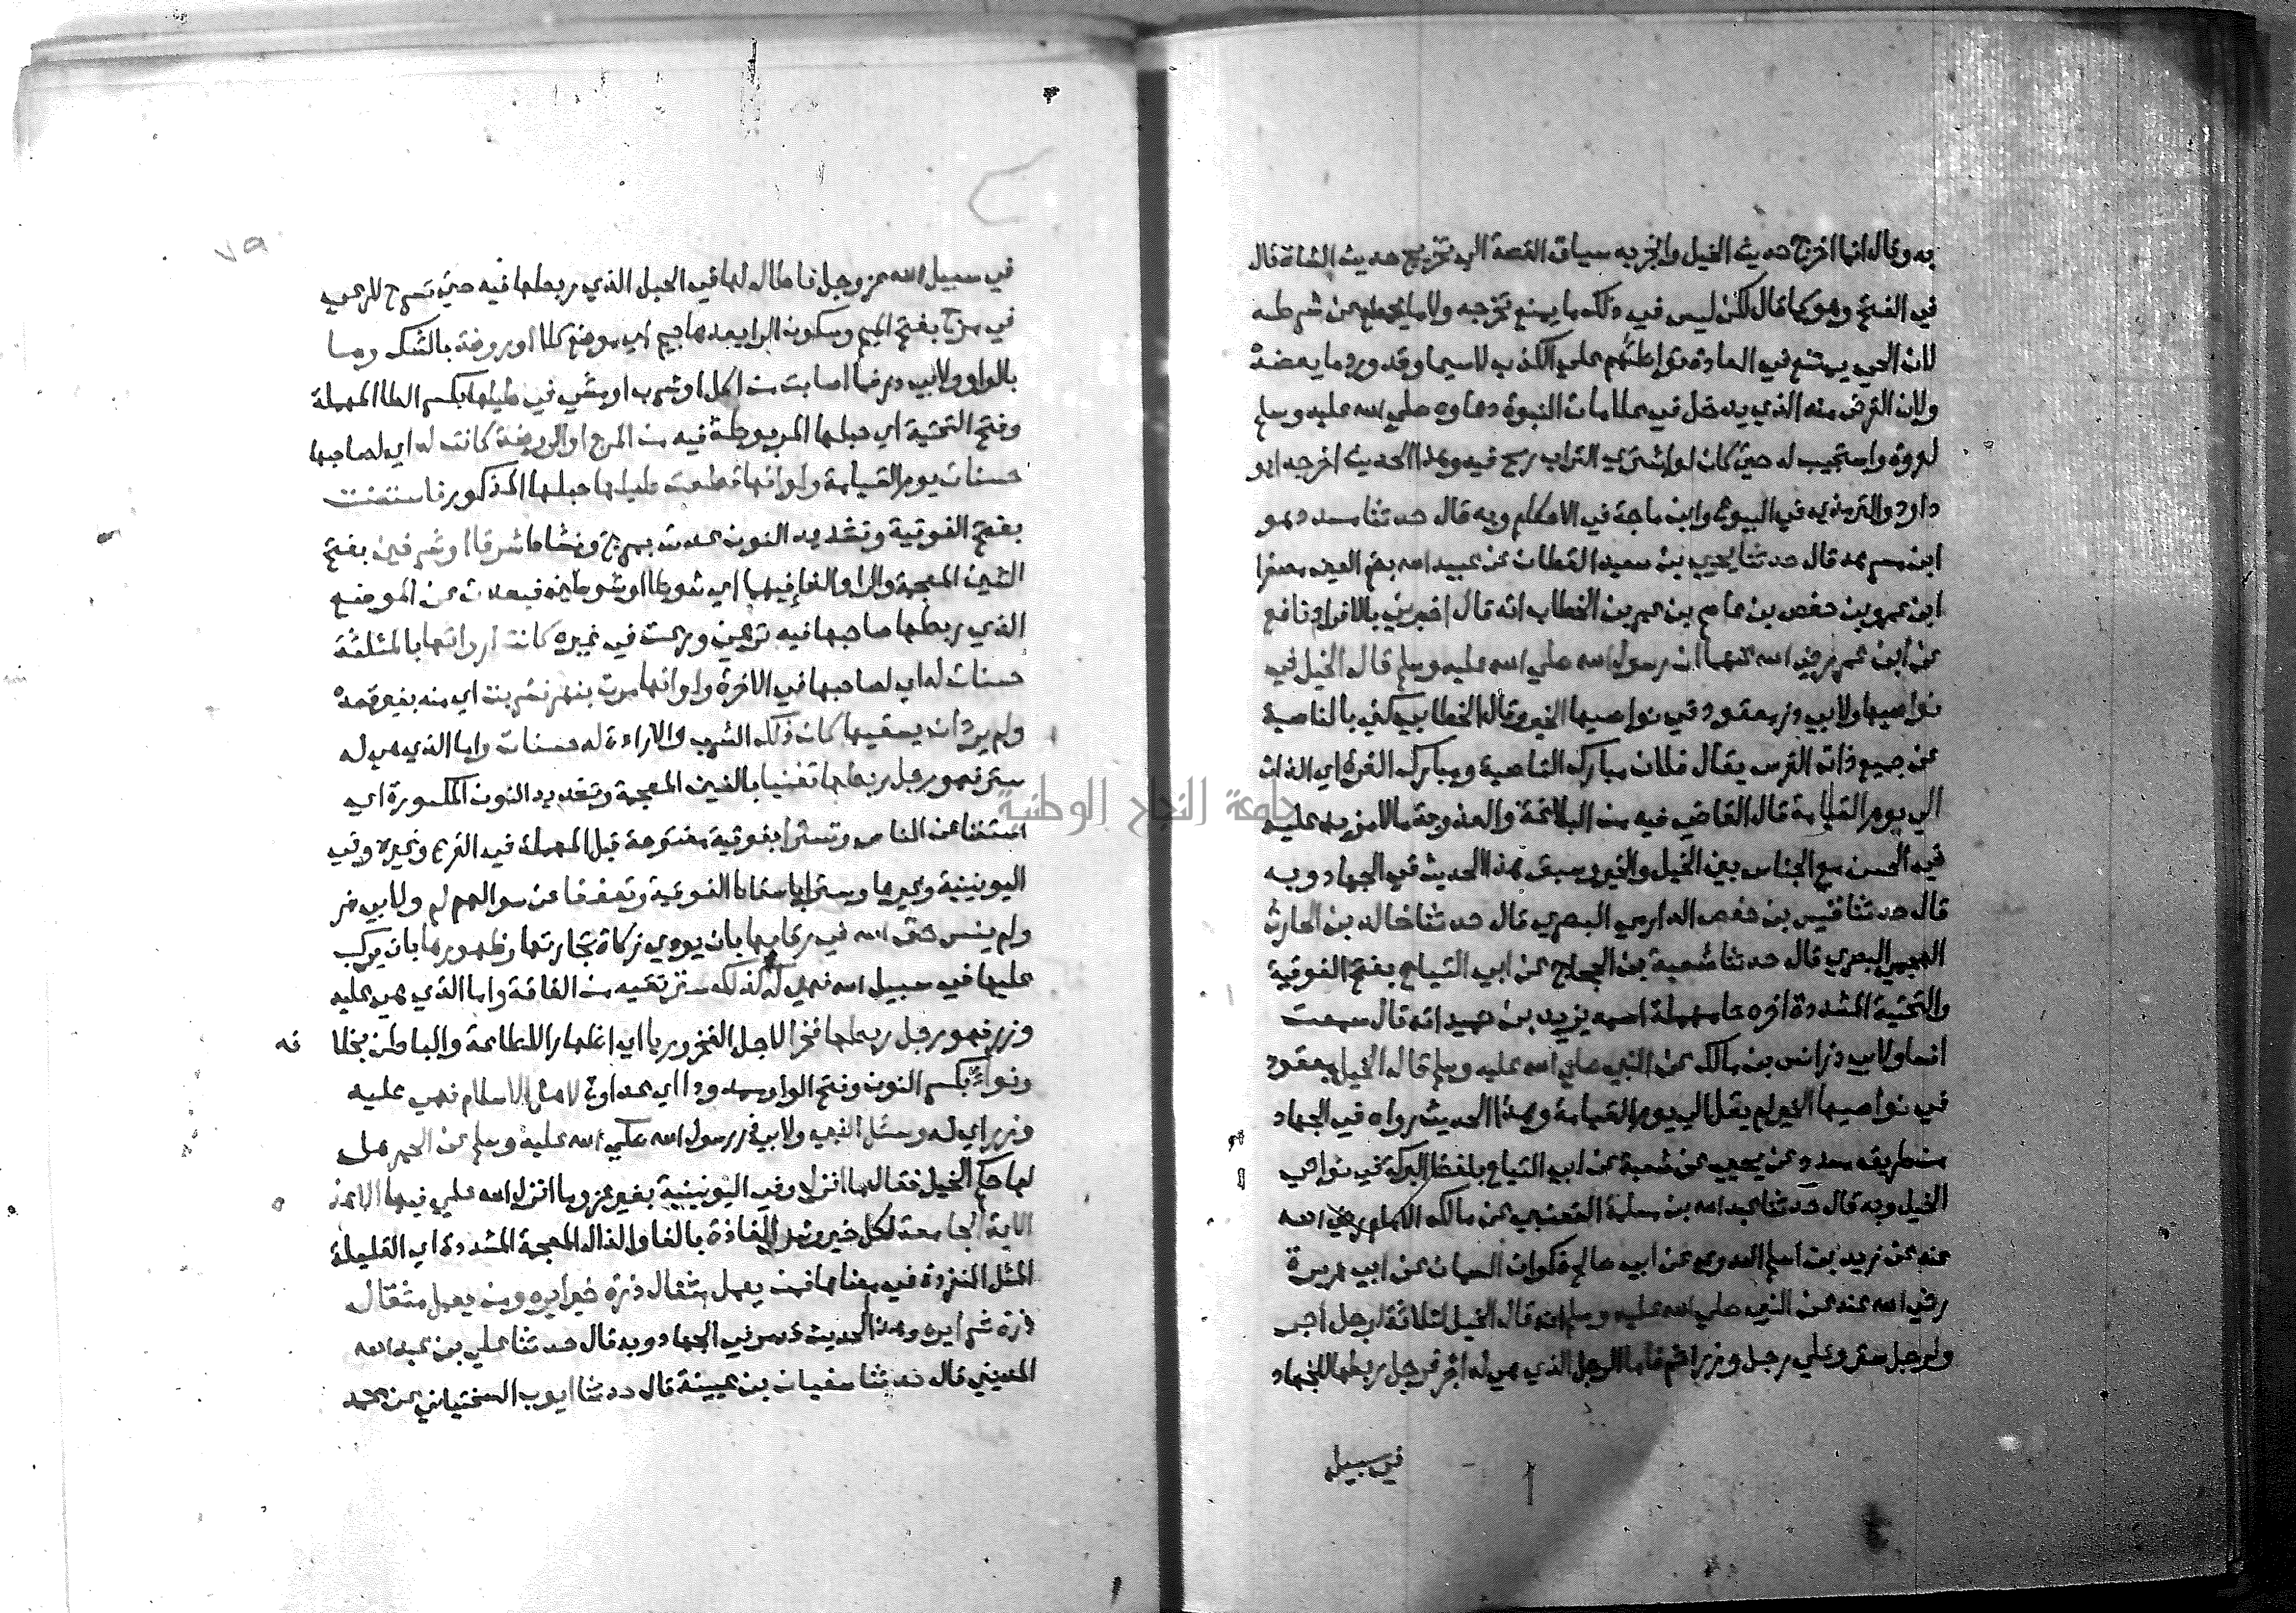 به وقال انما اخرج حديث الخيل وانجر به سياق القصة الي تخريج حديث الشاة قال
في الفتح وهو كما قال لكن ليس في ذلك ما يمنع تخرجه ولا ما يحطه عن شرطه
لان الحي يمتنع في العادة تواطئهم علي الكذب لاسيما وقد ورد ما يعضده
ولان الغرض منه الذي يدخل في علامات النبوة دعاوه صلي الله عليه وسلم
لعروة واستجيب له حتى كان لو اشتري التراب ربح فيه وهذا الحديث اخرجه ابو
داود والترمذي في البيوع وابن ماجة في الاحكام وبه قال حدثنا مسدد وهو
ابن مسرهد قال حدثنا يحيي بن سعيد القطان عن عبيد الله بضم العين مصغرا
ابن عمرو بن حفص بن عاصم بن عمر بن الخطاب انه قال اخبرني بالافراد نافع
عن ابن عمر رضي الله عنهما ان رسول الله صلي الله عليه وسلم قال الخيل في
نواصيها ولابي ذر معقود في نواصيها الخير وقال الخطابي كني بالناصية
عن جميع ذات الفرس يقال فلان مبارك الناصية ومبارك الغرة اي الذات
الي يوم القيامة قال القاضي فيه من البلاغة والعذوبة ما لا مزيد عليه
في الحسن مع الجناس بين الخيل والخير وسبق هذا الحديث في الجهاد وبه
قال حدثنا قيس بن حفص الدارمي البصري قال حدثنا خالد بن الحارث
الهجيمي البصري قال حدثنا شعبة بن الحجاج عن ابي التياح بفتح الفوقية
والتحتية المشددة اخره حا مهملة اسمه يزيد بن حميد انه قال سمعت
انسا ولابي ذر انس بن مالك عن النبي صلي الله عليه وسلم قال الخيل معقود
في نواصيها الخير لم يقل الي يوم القيامة وهذا الحديث رواه في الجهاد
من طريق مسدد عن يحيي عن شعبة عن ابي التياح بلفظ البركة في نواصي
الخيل وبه قال حدثنا عبد الله بن مسلمة القعنبي عن مالك الامام رضي الله
عنه عن زيد بن اسلم العدوي عن ابي صالح ذكوان السمان عن ابي هريرة
رضي الله عنه عن النبي صلي الله عليه وسلم انه قال الخيل لثلاثة لرجل اجر
ولرجل ستر وعلي رجل وزر اثم فاما الرجل الذي هي له اجر فرجل ربطها للجهاد
في سبيل
٧٩
في سبيل الله عز وجل فاطال لها في الحبل الذي ربطها فيه حتي تسرح للرعي
في مرج بفتح الميم وسكون الرا بعدها جيم اي موضع كلا او روضة بالشك وما
بالواو ولابي ذر فما اصابت من اكل او شرب او مشي في طيلها بكسر الطا المهملة
وفتح التحتية اي حبلها المربوطة فيه من المرج او الروضة كانت له اي لصاحبها
حسنات يوم القيامة ولو انها قطعت طيلها حبلها المذكور فاستنت
بفتح الفوقية وتشديد النون عدت بمرج ونشاط شرفا او شرفين بفتح
الشين المعجمة والرا والفا فيهما اي شوطا او شوطين فبعدت عن الموضع
الذي ربطها صاحبها فيه ترعي ورعت في غيره كانت ارواثها بالمثلثة
حسنات له اي لصاحبها في الاخرة ولو انها مرت بنهر فشربت اي منه بغير قصده
ولم يرد ان يسقيها كان ذلك الشرب والارادة له حسنات واما الذي هي له
ستر فهو رجل ربطها تغنيا بالغين المعجمة وتشديد النون المكسورة اي
استغنا عن الناس وتسترا بفوقية مفتوحة قبل المهملة في الفرع وغيره وفي
اليونينية وغيرها وسترا باسقاط الفوقية وتعففا عن سوالهم لم ولابي ذر
ولم ينس حق الله في رقابها بان يودي زكاة تجارتها وظهورها بان يركب
عليها في سبيل الله فهي له كذلك ستر تقيه من الفاقة واما الذي هي عليه
وزر فهو رجل ربطها فخرا لاجل الفخر وريا اي اظهارا للطاعة والباطن بخلا فه
ونواء بكسر النون وفتح الواو ممدودا اي عداوة لاهل الاسلام فهي عليه
وزر اي له وسئل النبي ولابي ذر رسول الله صلي الله عليه وسلم عن الحمر هل
لها حكم الخيل فقال ما انزل وفي اليونينية بغير عزو ما انزل الله علي فيها الا هذه
الاية الجامعة لكل خير وشر الفاذة بالفا والذال المعجمة المشددة اي القليلة
المثل المنفردة في معناها فمن يعمل مثقال ذرة خيرا يره ومن يعمل مثقال
ذرة شرا يره وهذا الحديث قد مر في الجهاد وبه قال حدثنا علي بن عبد الله
المديني قال حدثنا سفيان بن عيينة قال حدثنا ايوب السختياني عن محمد
جامعة النجاح الوطنية